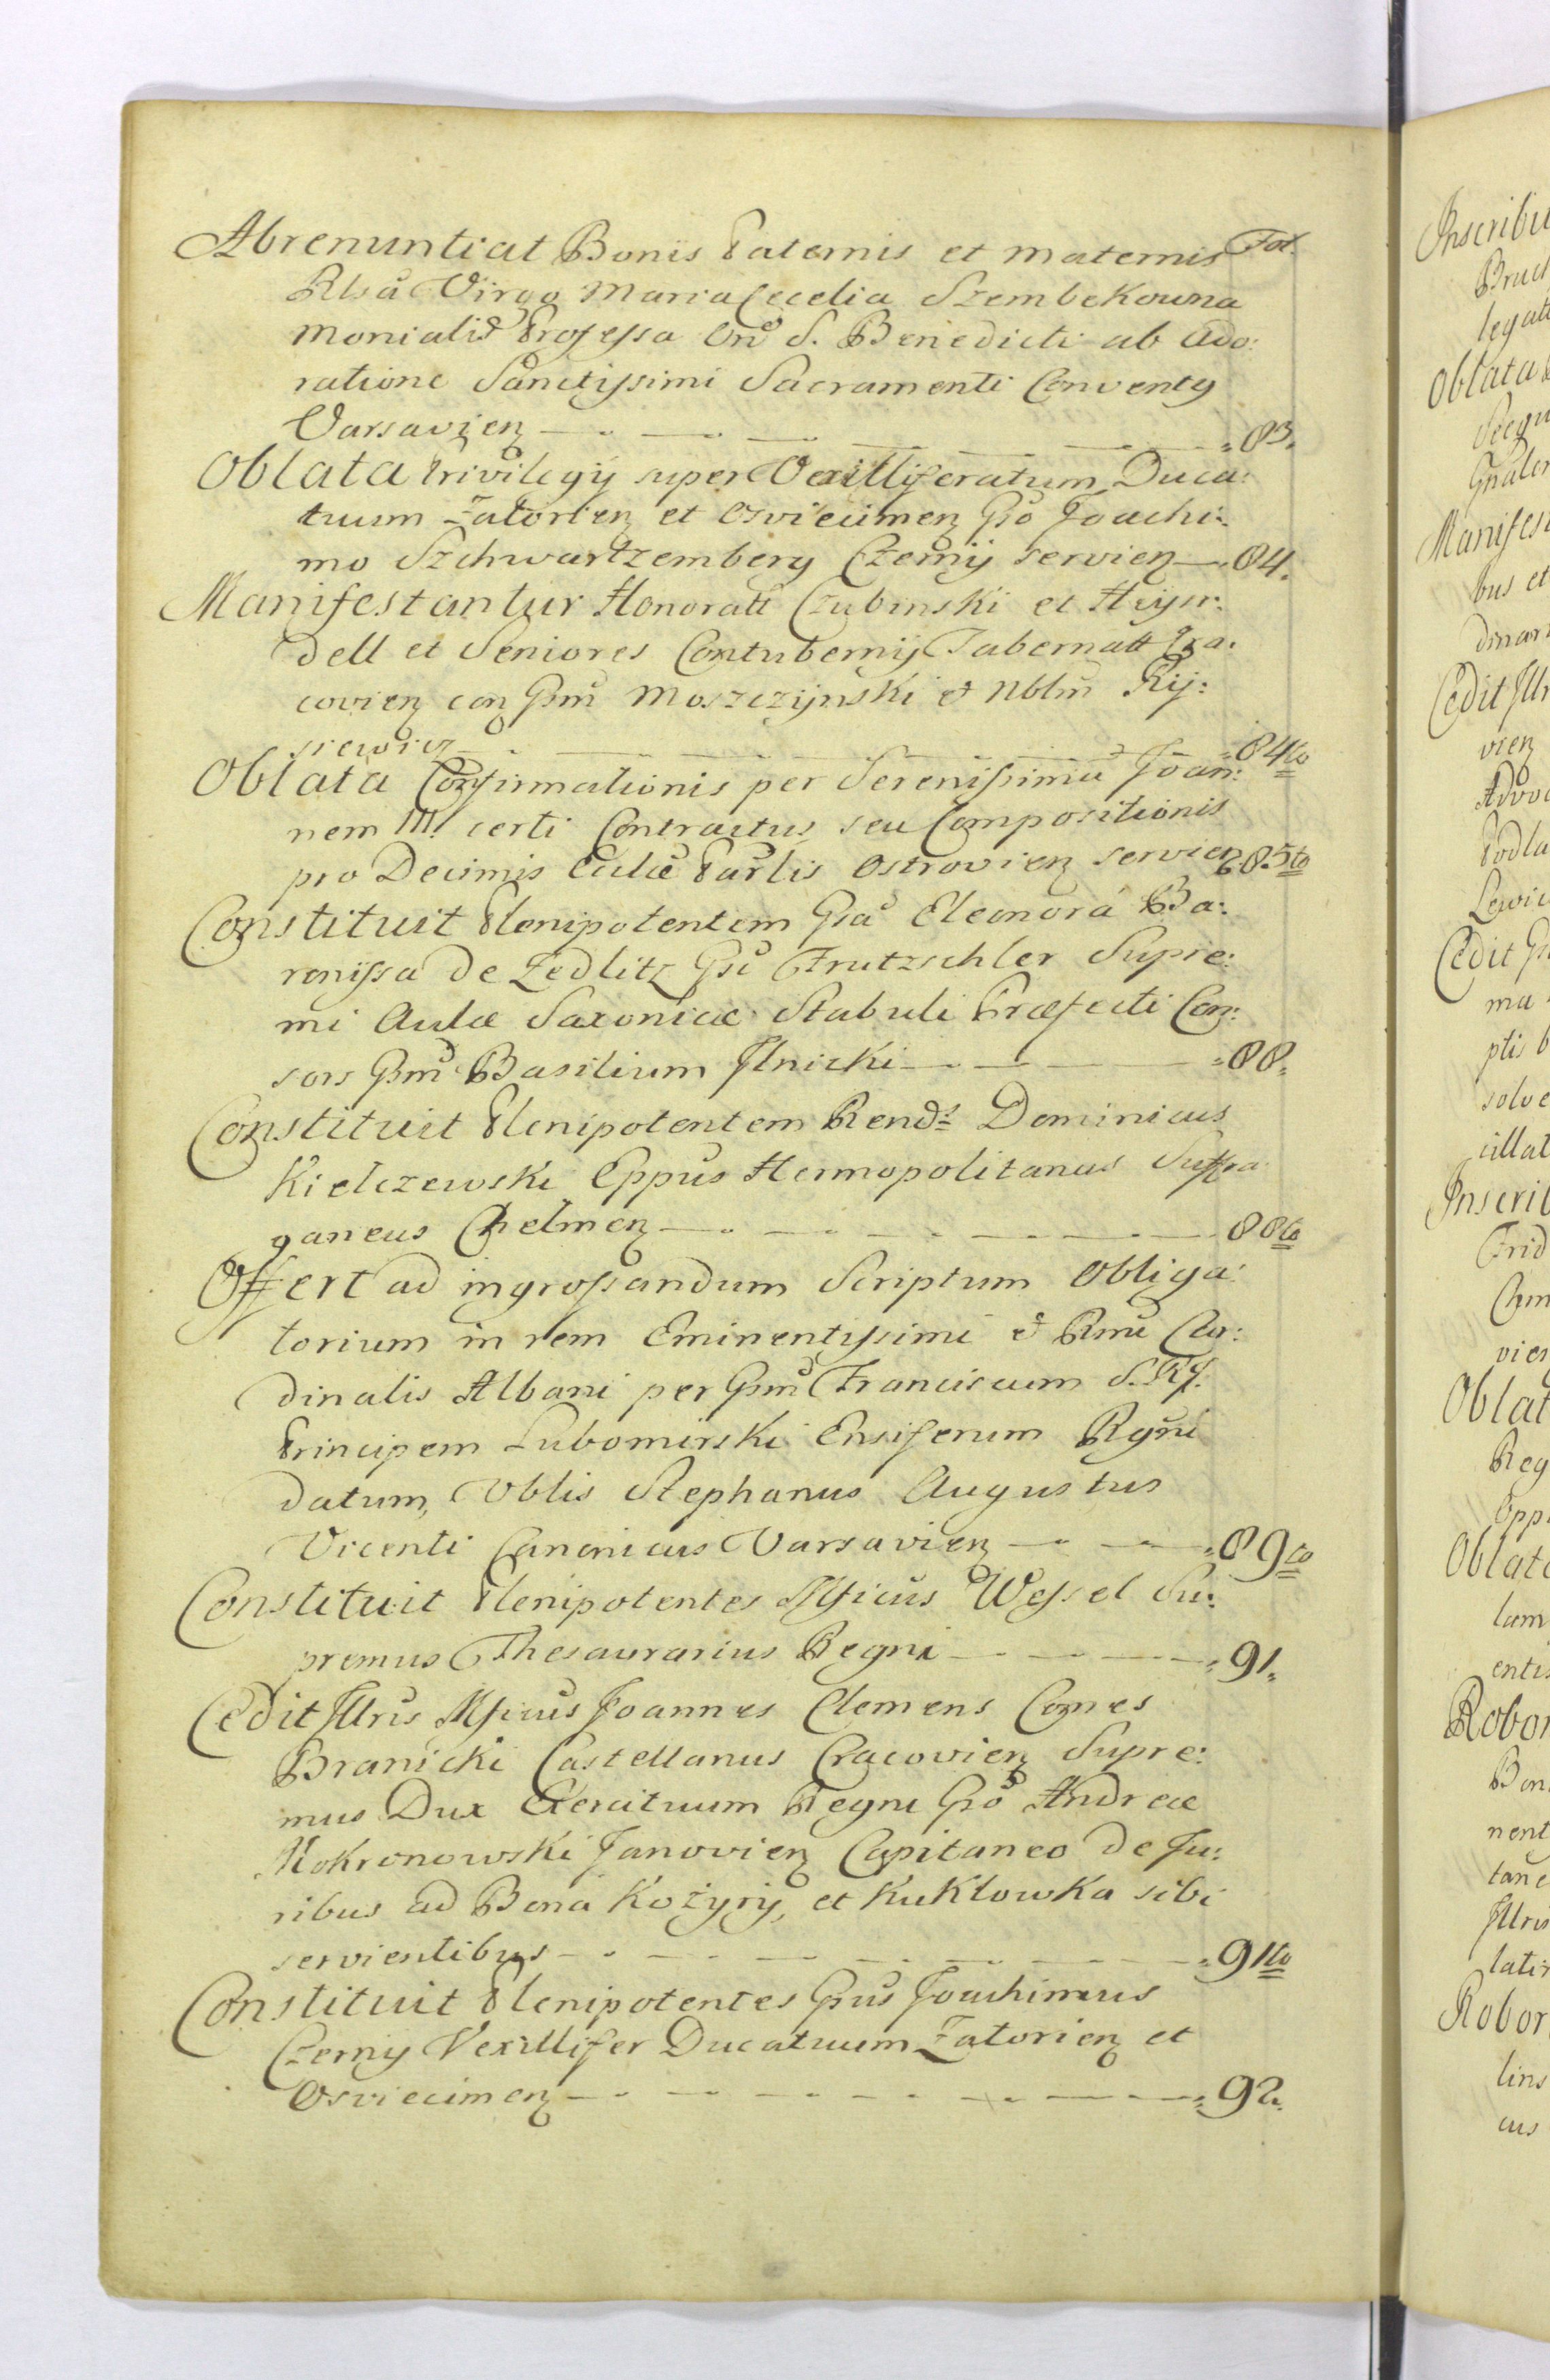 Abrenuntiat Bonis Paternis et maternis Fol.
Rlsa Virgo Maria Cecelia Szembekowna
Monialis Professa Ord S. Benedicti ab Ado:
ratione Sanctissimi Sacramenti Conventus
Varsavien — 83.
Oblata Privilegij super Vexilliferatum Duca:
tuum Zatorien et Osviecimen Gso Joachi:
mo Szchwartzemberg Czerny servien — 84.
Manifestantur Honorati Czubinski et
dell et Seniores Contubernij Tabernatt Cra:
covien con Gsm Moszczijnski et Nblm Rij:
siewicz — 84to
Oblata Confirmationis per Serenissimu Joan:
nem III. certi Contractus seu Compositionis
pro Decimis Eccla Parlis Ostrovien servien 85to
Constituit Plenipotentem Gsa Eleonora Ba:
ronissa de Zedlitz Gsi Frutzschler Supre:
mi Aulæ Saxonicæ Stabuli Præfecti Con:
sors Gsm Basilium Ilnicki — 88.
Constituit Plenipotentem Rends Dominicus
Kielczewski Eppus Hermopolitanus Suffra
ganeus Chelmen — 88to
Offert ad ingrossandum Scriptum Obliga:
torium in rem Eminentissimi et Rmi Car:
dinalis Albani per Gsm Franciscum S. R. J.
Principem Lubomirski Ensiferum Rgni
datum, Nblis Stephanus Augustus
Vicenti Canonicus Varsavien — 89to
Constituit Plenipotentes Mficus Wessel Su:
premus Thesaurarius Regni — 91.
Cedit Illris Mficus Joannes Clemens Comes
Branicki Castellanus Cracovien Supre:
mus Dux Exercituum Regni Gso Andreæ
Mokronowski Janovien Capitaneo de Ju:
ribus ad Bona Kożyry, et Kuklowka sibi
servientibus — 91to
Constituit Plenipotentes Gsus Joachimus
Czerny Vexillifer Ducatuum Zatorien et
Osviecimen — 92.